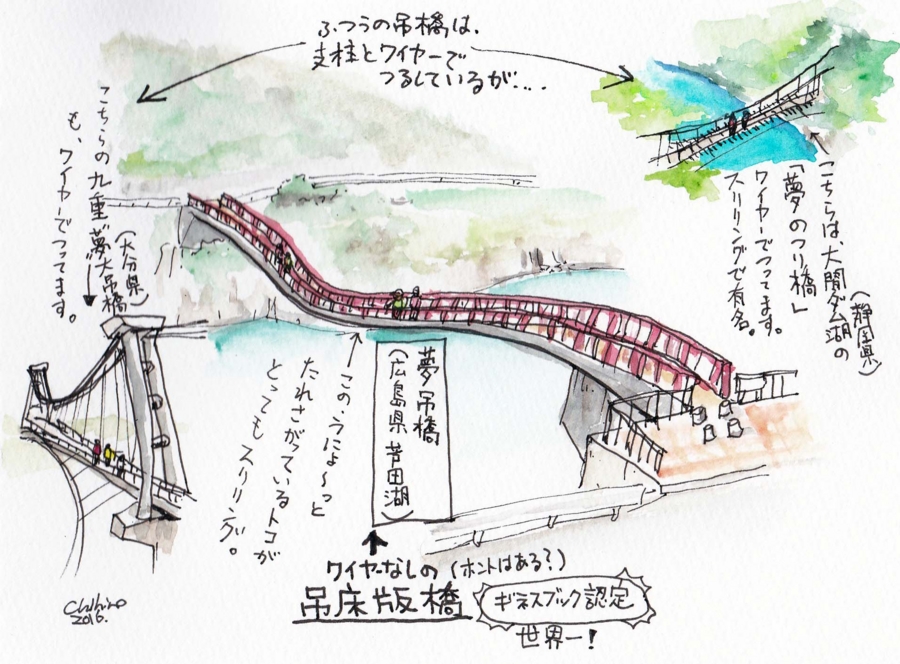 ふつうの吊橋は、
支柱とワイヤーで
つるしているが…
こちらの九重"夢"大吊橋
(大分県)
も、ワイヤーでつってます。
こちらは、大間ダム湖の
(静岡県)
「夢のつり橋」
ワイヤーでつってます。
スリリングで有名。
この、うにょ〜っと
たれさがっているトコが
とってもスリリング。
夢吊橋
(広島県 芦田湖)
ワイヤーなしの(ホントはある?)
吊床版橋
ギネスブック認定
世界一!
Chihiro
2016.